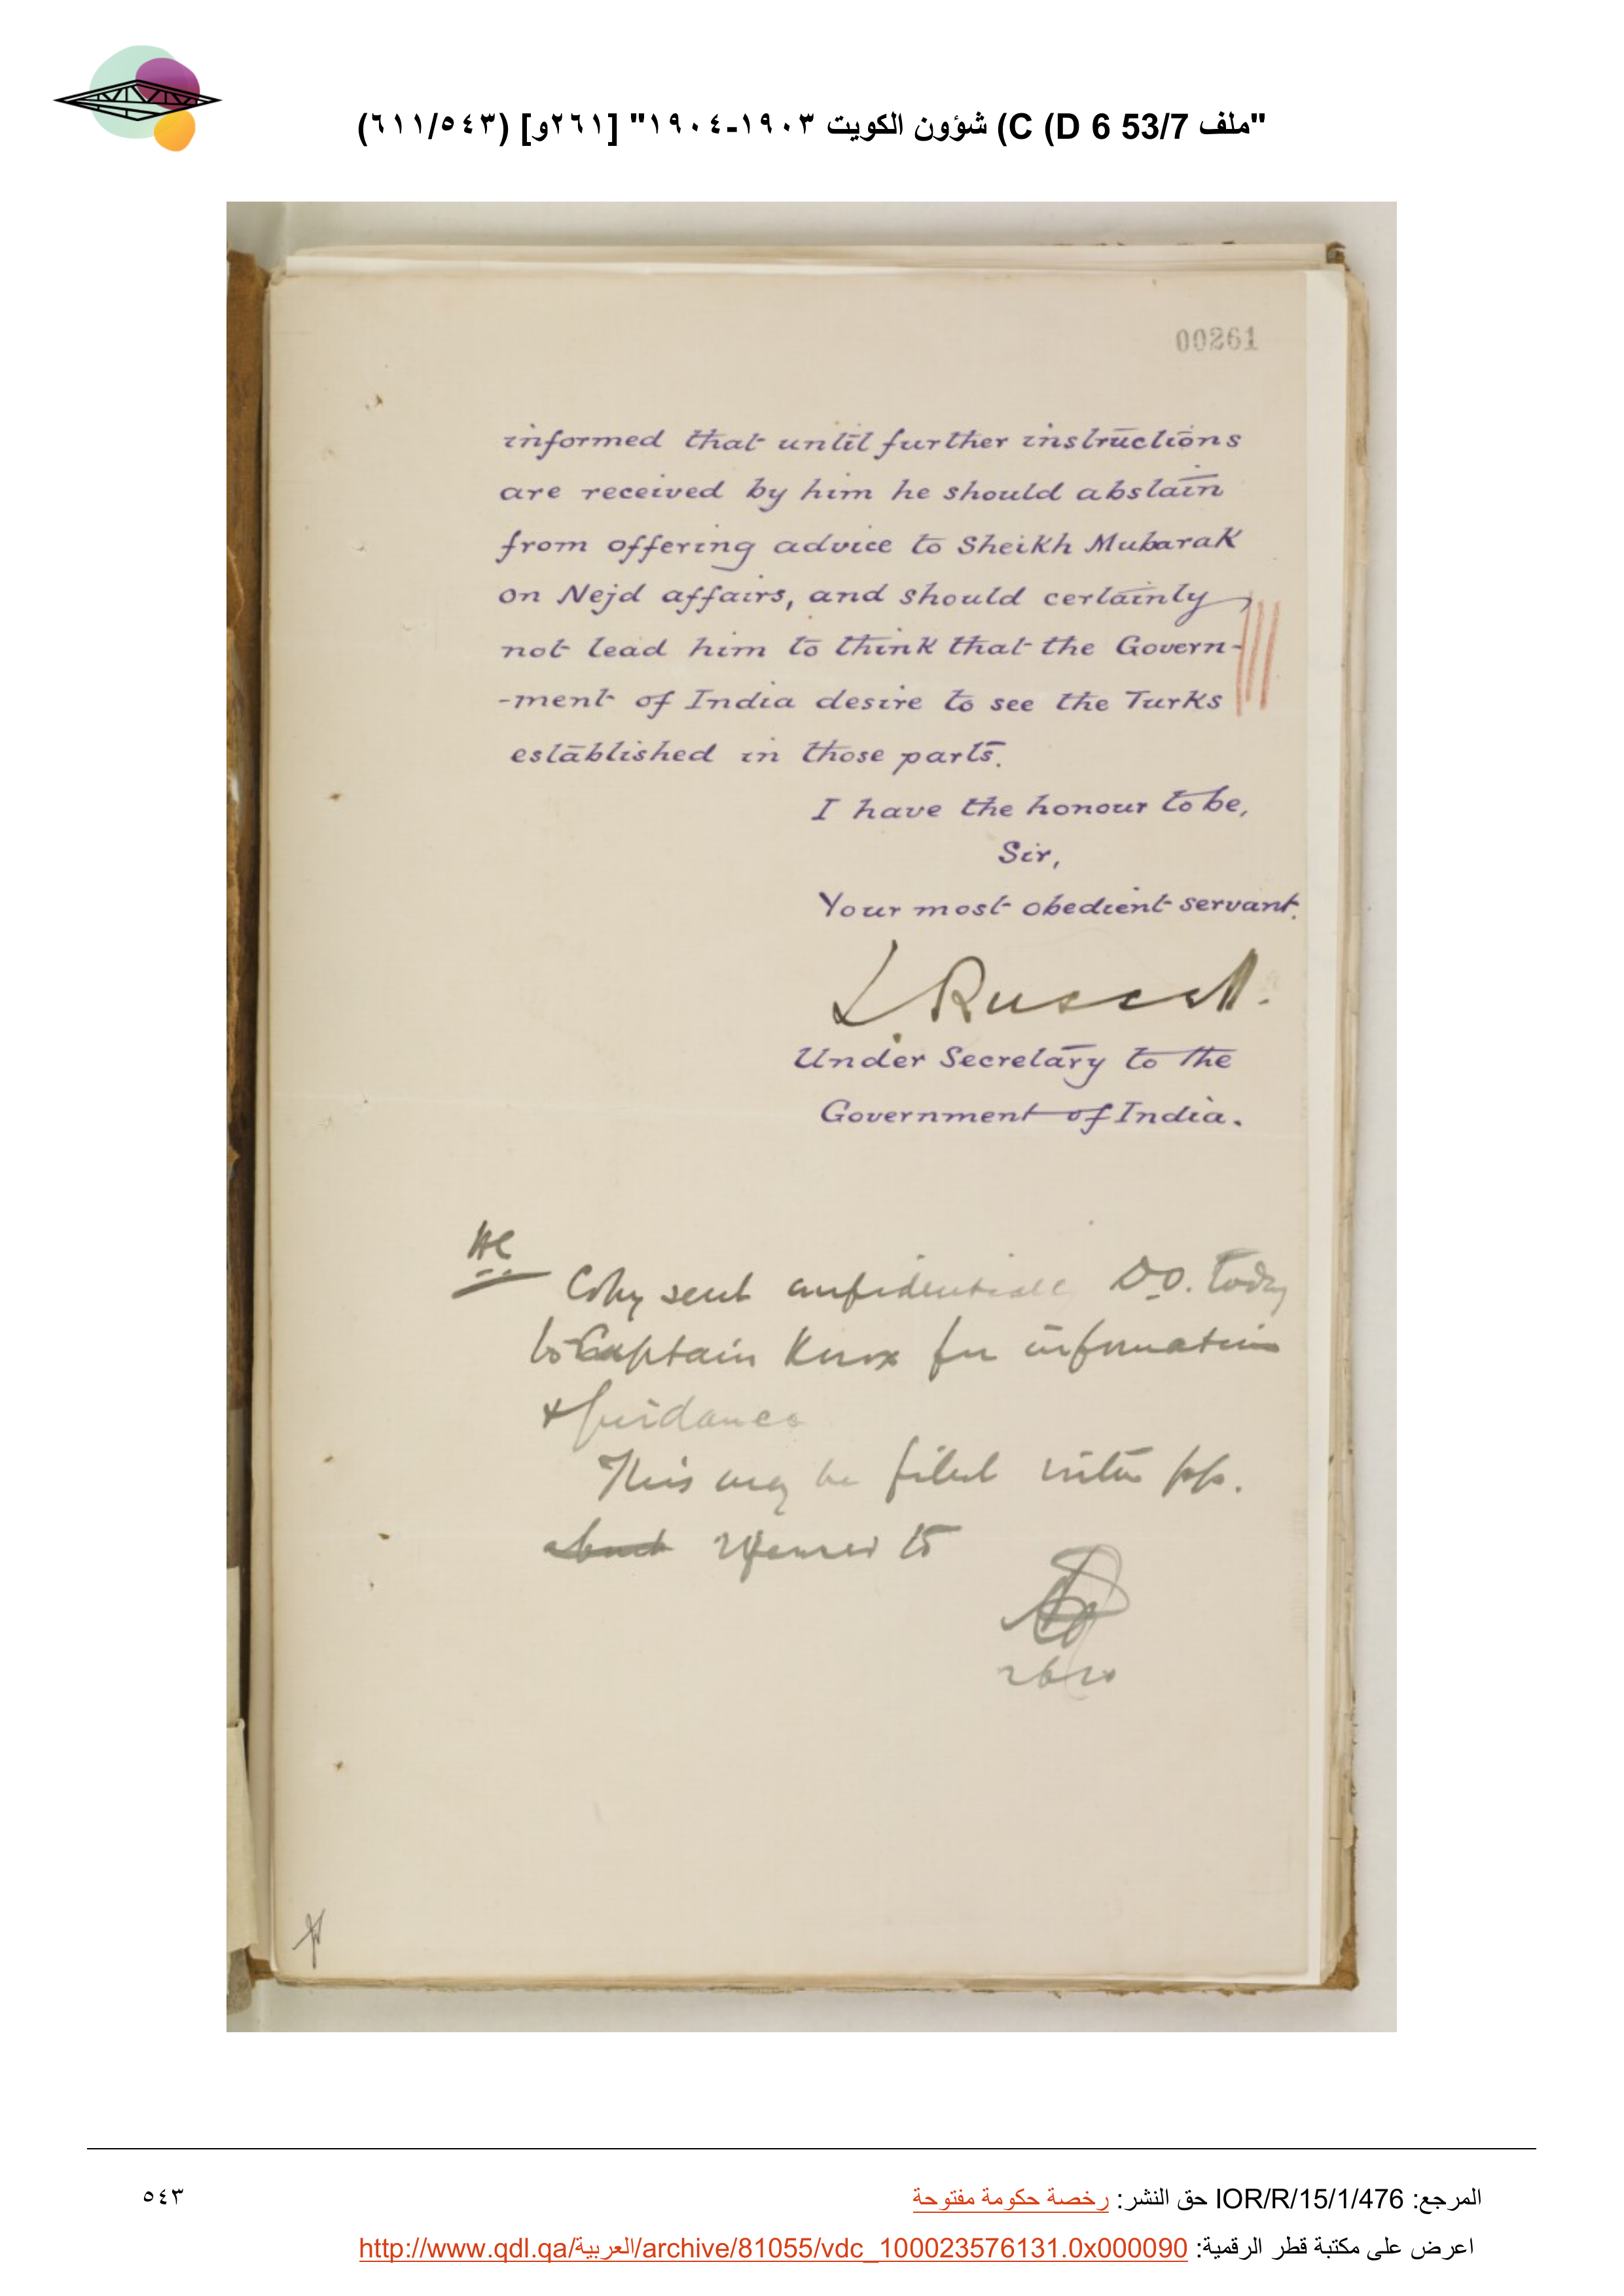 "ملف C (D 6 53/7) شؤون الكويت ١٩٠٣-١٩٠٤" [٢٦١و] (٦١١/٥٤٣)
00261
informed that until further instructions
are received by him he should abstain
from offering advice to Sheikh Mubarak
on Nejd affairs, and should certainly
not lead him to think that the Govern-
-ment of India desire to see the Turks
established in those parts.
I have the honour to be,
Sir,
Your most obedient servant.
L. Russell.
Under Secretary to the
Government of India.
Copy sent confidentially D.O. today
to Captain Knox for information
& guidance
This may be filed with pp.
referred to
المرجع: IOR/R/15/1/476 حق النشر: رخصة حكومة مفتوحة
٥٤٣
اعرض على مكتبة قطر الرقمية: http://www.qdl.qa/العربية/archive/81055/vdc_100023576131.0x000090